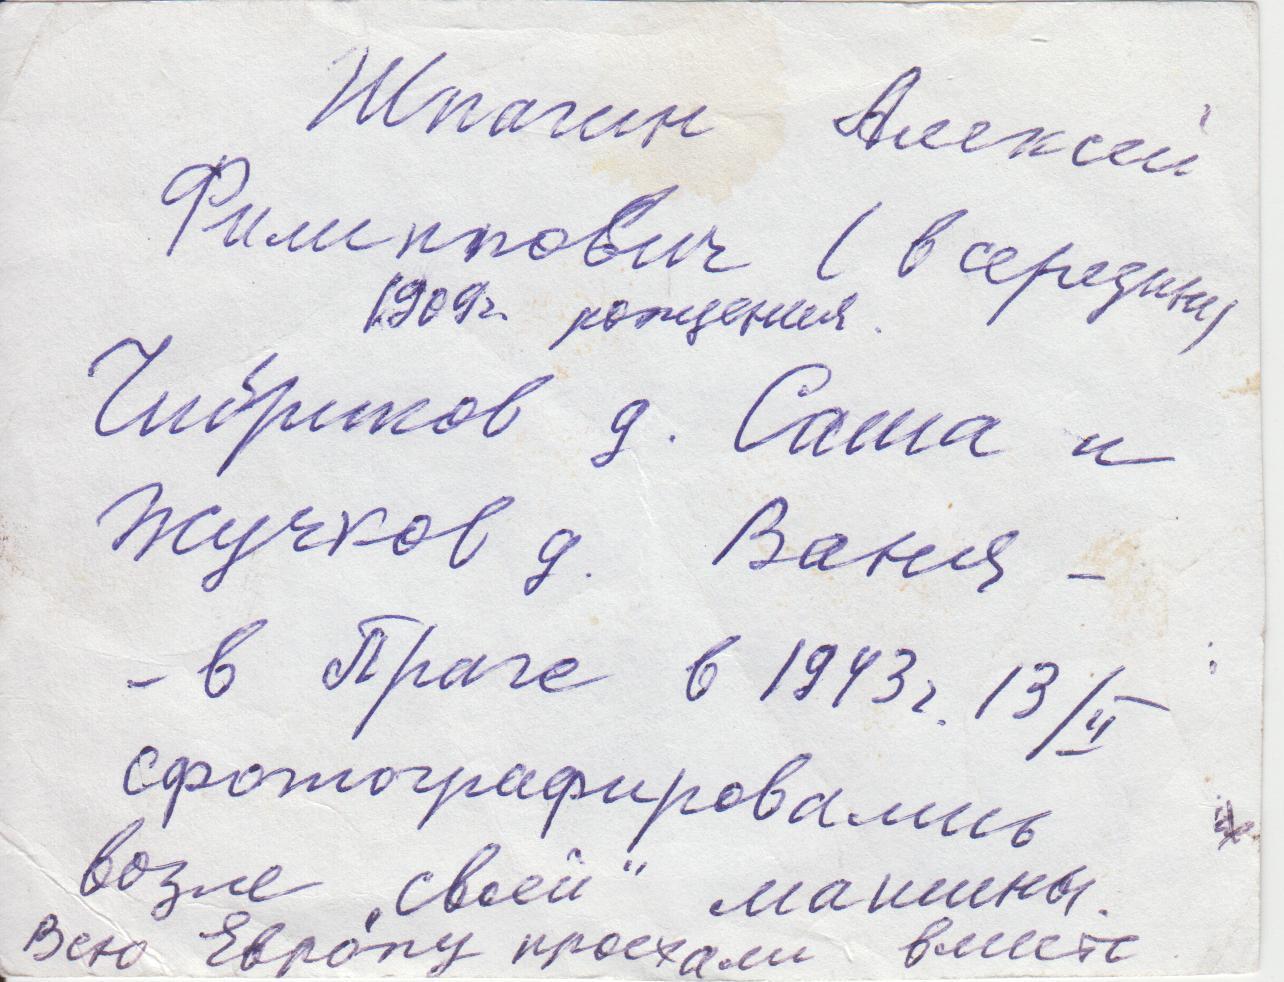 Шпагин Алексей
Филиппович (в середине)
1909г. рождения.
Чибриков д. Саша и
Жучков д. Ваня -
- в Праге в 1943г. 13/II
сфотографировались
возле „своей" машины.
Всю Европу проехали вместе